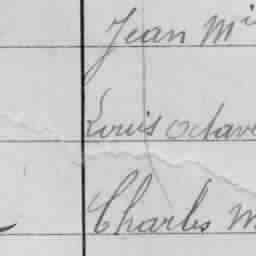 Jean Mi
Louis Octave
Charles M